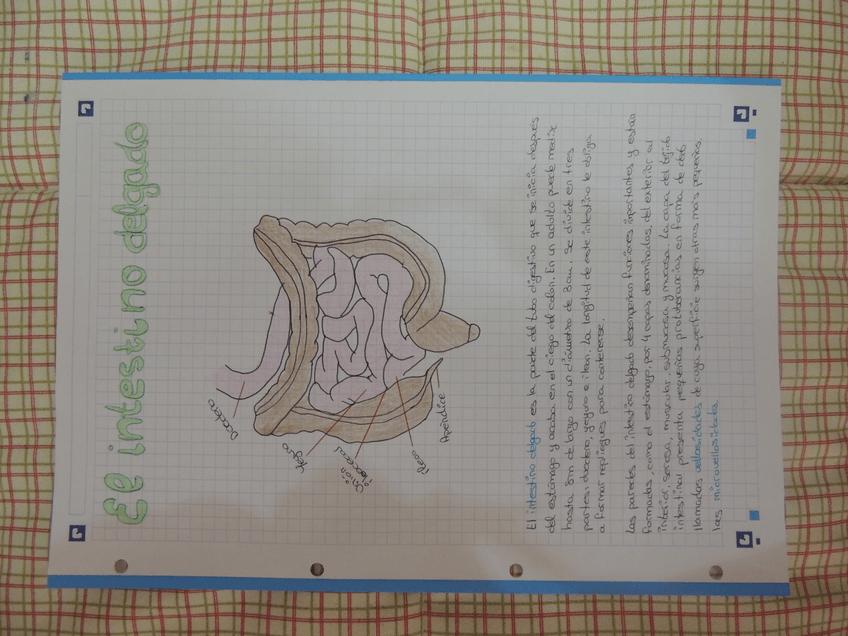 El intestino delgado
Duodeno
Yeyuno
Unión
ileocecal
Íleon
Apéndice
El intestino delgado es la parte del tubo digestivo que se inicia después
del estómago y acaba en el ciego del colon. En un adulto puede medir
hasta 8m de largo con un diámetro de 3cm. Se divide en tres
partes: duodeno, yeyuno e ílean. La longitud de este intestino le obliga
a formar repliegues para contenerse.
Las paredes del intestino delgado desempeñan funciones importantes y están
formadas, como el estómago, por 4 capas denominadas, del exterior al
interior, serosa, muscular, submucosa y mucosa. La capa del tejido
intestinal presenta pequeñas protuberancias en forma de dedo
llamadas vellosidades de cuya superficie surgen otras más pequeñas,
las microvellosidades.